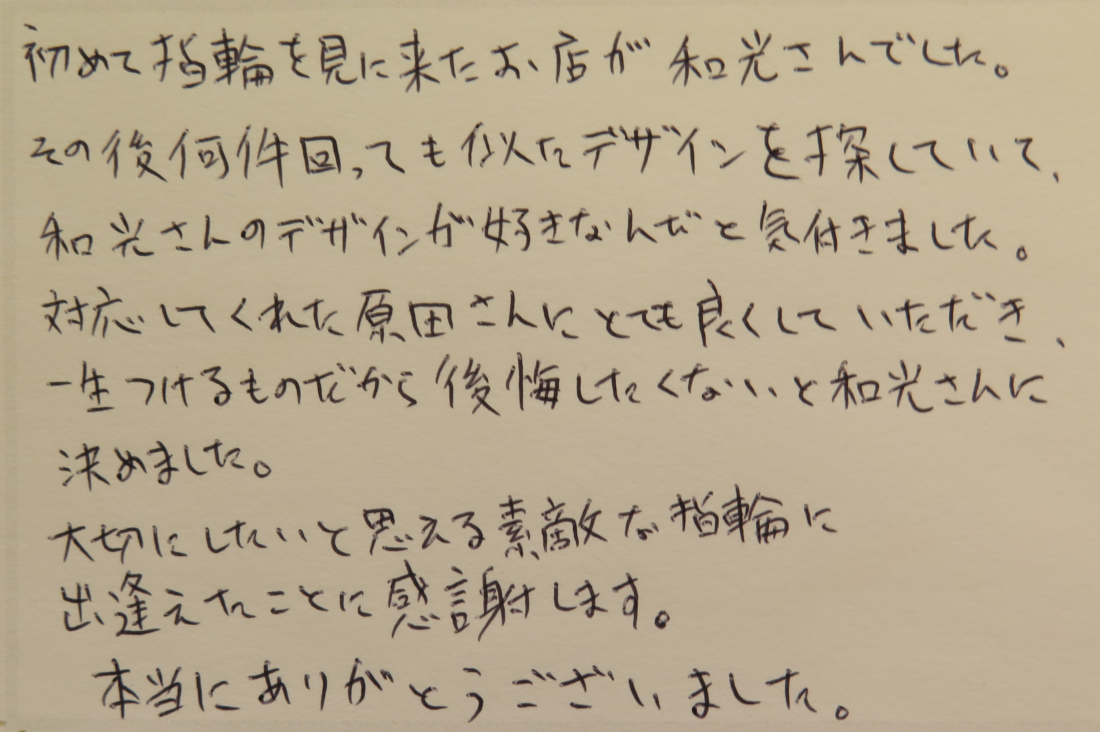 初めて指輪を見に来たお店が和光さんでした。
その後何件回っても似たデザインを探していて、
和光さんのデザインが好きなんだと気付きました。
対応してくれた原田さんにとても良くしていただき、
一生つけるものだから後悔したくないと和光さんに
決めました。
大切にしたいと思える素敵な指輪に
出逢えたことに感謝します。
本当にありがとうございました。